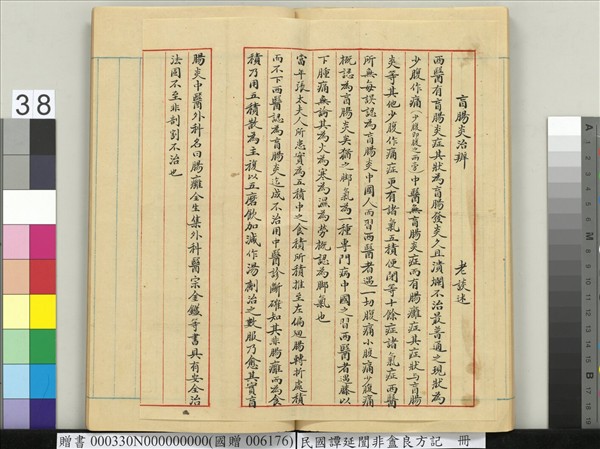 盲腸炎治辨　　老談述
西醫有盲腸炎症其狀為盲腸發炎久且潰爛不治最普通之現狀為
少腹作痛(少腹即腹之兩邊)中醫無盲腸炎症而有腸癰症其症狀与盲腸
炎等其他少腹作痛症更有諸氣五積便閉等十餘症諸氣症西醫
所無每誤認為盲腸炎中國人而習西醫者遇一切腹痛小腹痛少腹痛
概認為盲腸炎矣猶之脚氣為一種專門病中國之習西醫者遇膝以
下腫痛無論其為火為寒為濕為勞概認為脚氣也
當年張太夫人所患實為五積中之食積所積推至左偏迴腸轉折處積
而不下西醫認為盲腸炎迄成不治用中醫診斷確知其非腸癰而為食
積乃用五積散為主複以五磨飲加減作湯劑治之數服乃愈其實盲
腸炎中醫外科名曰腸癰全生集外科醫宗金鑑等書具有安全治
法固不至非剖割不治也
38
贈書 000330N000000000(國贈 006176)
民國譚延闓非盦良方記　冊